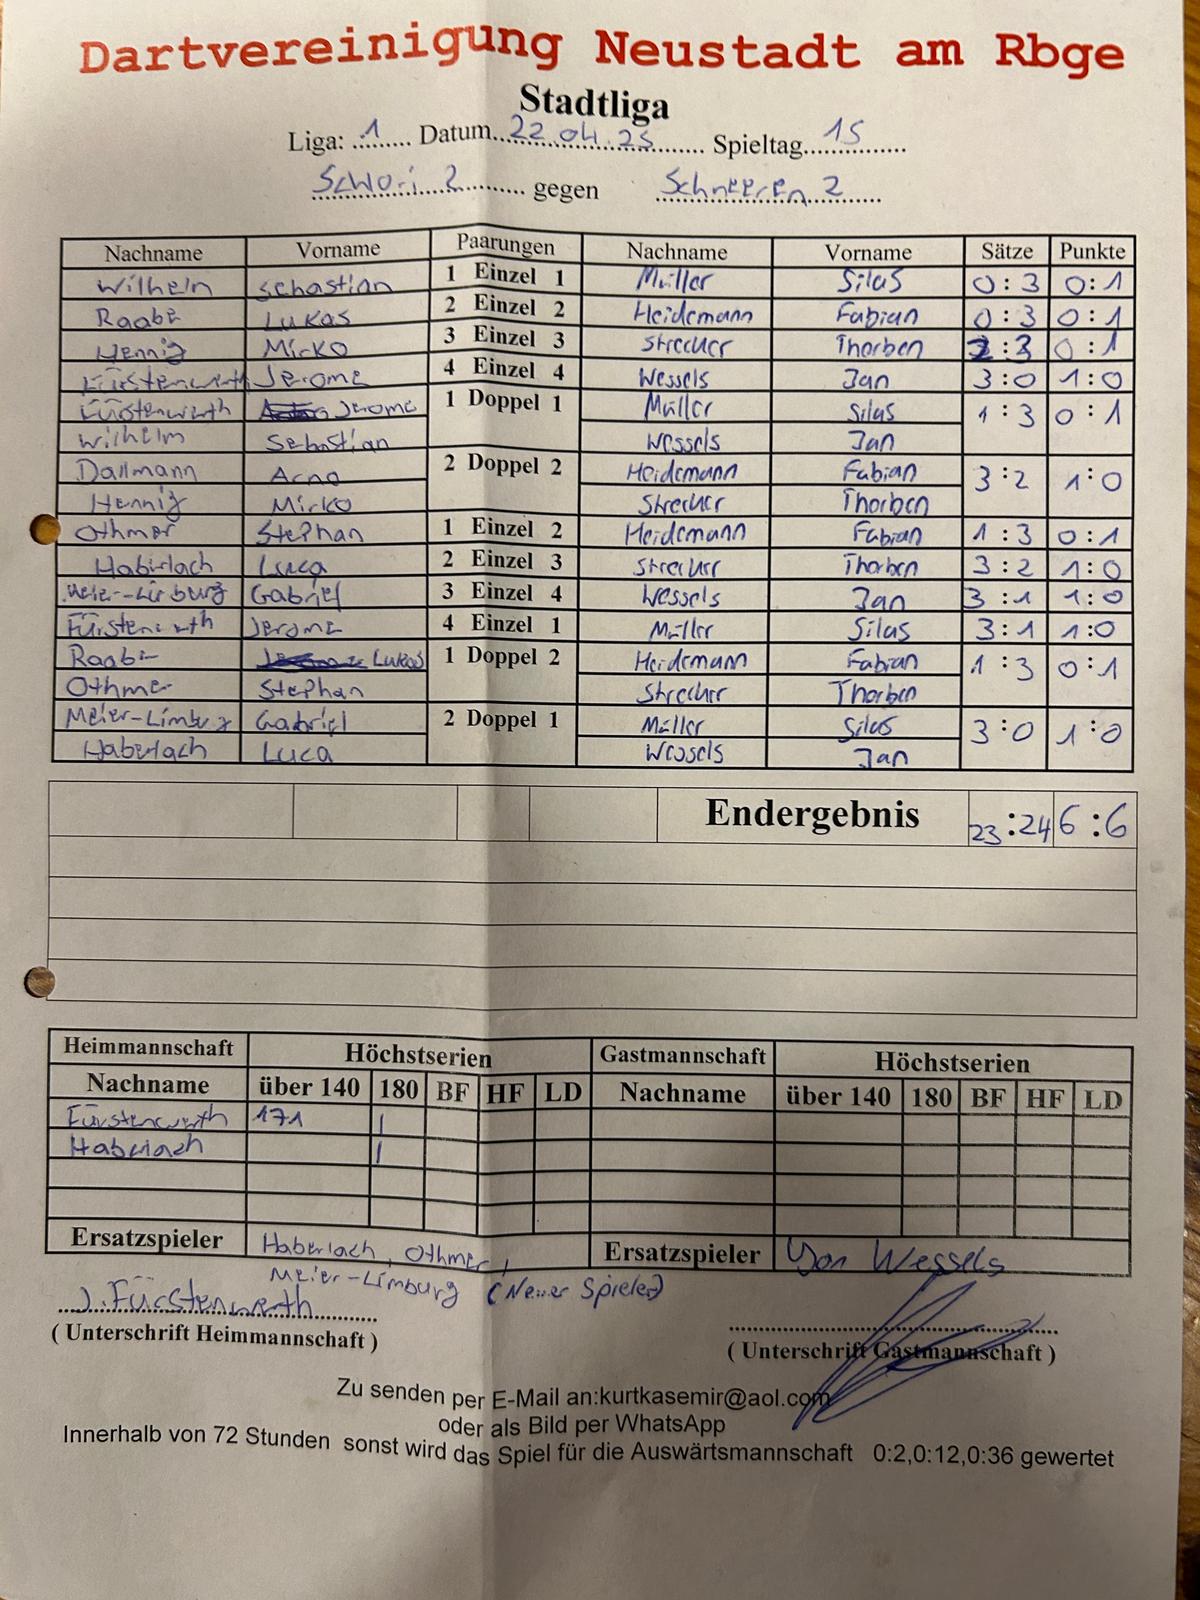 Dartvereinigung Neustadt am Rbge
Stadtliga
Liga: 1 Datum 22.04.25 Spieltag 15
Schwori 2 gegen Schneeren 2
Nachname Vorname Paarungen Nachname Vorname Sätze Punkte
Wilhelm Sebastian 1 Einzel 1 Müller Silas 0:3 0:1
Raabe Lukas 2 Einzel 2 Heidemann Fabian 0:3 0:1
Hennig Mirko 3 Einzel 3 Strecker Thorben 2:3 0:1
Fürstenwerth Jerome 4 Einzel 4 Wessels Jan 3:0 1:0
Fürstenwerth Jerome 1 Doppel 1 Müller Silas 1:3 0:1
Wilhelm Sebastian Wessels Jan
Dallmann Arno 2 Doppel 2 Heidemann Fabian 3:2 1:0
Hennig Mirko Strecker Thorben
Othmer Stephan 1 Einzel 2 Heidemann Fabian 1:3 0:1
Haberlach Luca 2 Einzel 3 Strecker Thorben 3:2 1:0
Meier-Limburg Gabriel 3 Einzel 4 Wessels Jan 3:1 1:0
Fürstenwerth Jerome 4 Einzel 1 Müller Silas 3:1 1:0
Raabe Lukas 1 Doppel 2 Heidemann Fabian 1:3 0:1
Othmer Stephan Strecker Thorben
Meier-Limburg Gabriel 2 Doppel 1 Müller Silas 3:0 1:0
Haberlach Luca Wessels Jan
Endergebnis 23:24 6:6
Heimmannschaft Höchstserien Gastmannschaft Höchstserien
Nachname über 140 180 BF HF LD Nachname über 140 180 BF HF LD
Fürstenwerth 171 |
Haberlach |
Ersatzspieler Haberlach, Othmer, Ersatzspieler Jan Wessels
Meier-Limburg (Neuer Spieler)
J. Fürstenwerth
( Unterschrift Heimmannschaft ) ( Unterschrift Gastmannschaft )
Zu senden per E-Mail an:kurtkasemir@aol.com
oder als Bild per WhatsApp
Innerhalb von 72 Stunden sonst wird das Spiel für die Auswärtsmannschaft 0:2,0:12,0:36 gewertet